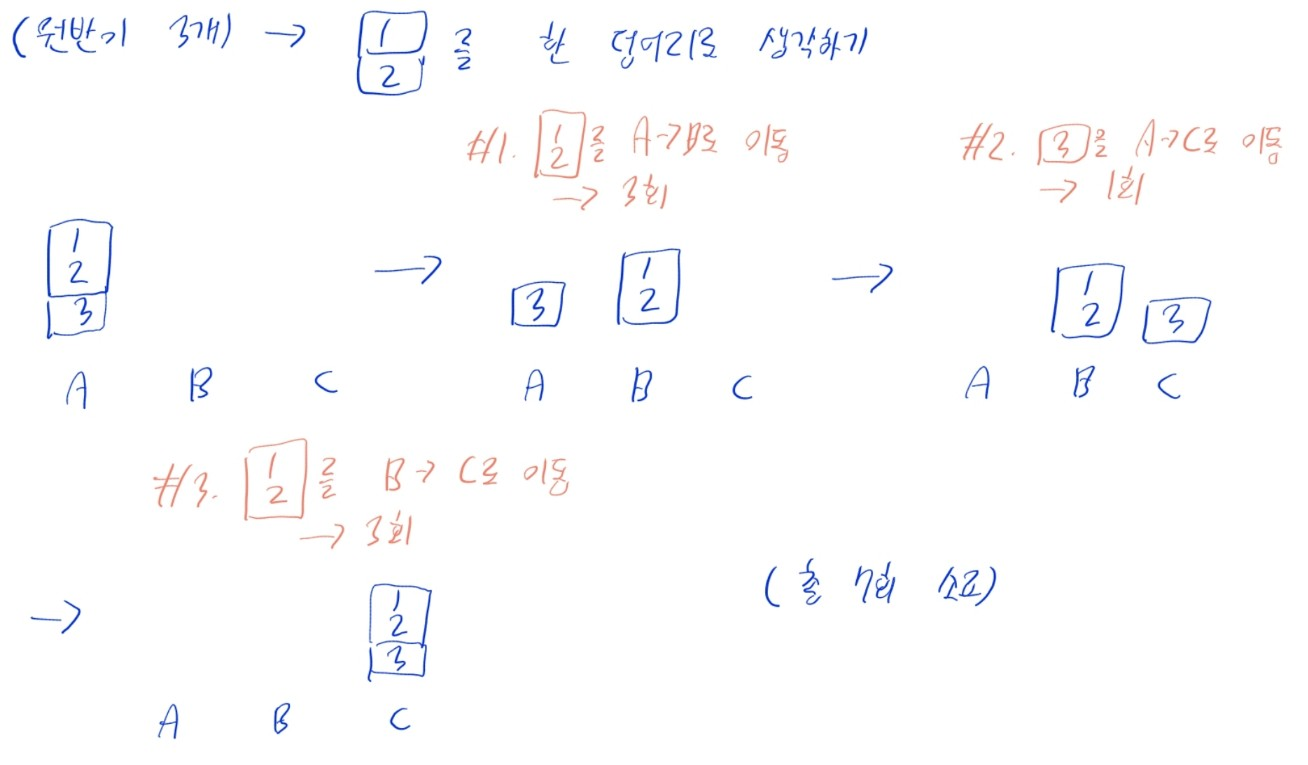 (원반이 3개) → 1 2 를 한 덩어리로 생각하기
#1. 1 2 를 A→B로 이동
→ 3회
#2. 3 를 A→C로 이동
→ 1회
1
2
3
A B C
→
3
1
2
A B C
→
1
2
3
A B C
#3. 1 2 를 B→C로 이동
→ 3회
→
1
2
3
A B C
(총 7회 소요)